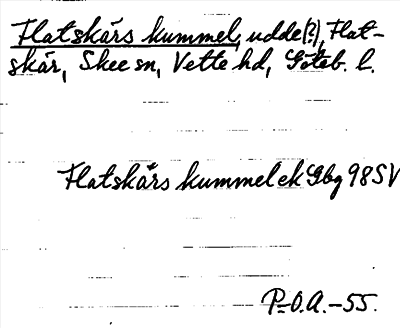 Flatskärs kummel, udde(?), Flat-
skär, Skee sn, Vette hd, Göteb. l.
Flatskärs kummel ek Gbg 98 SV
P.-O.A.-55.